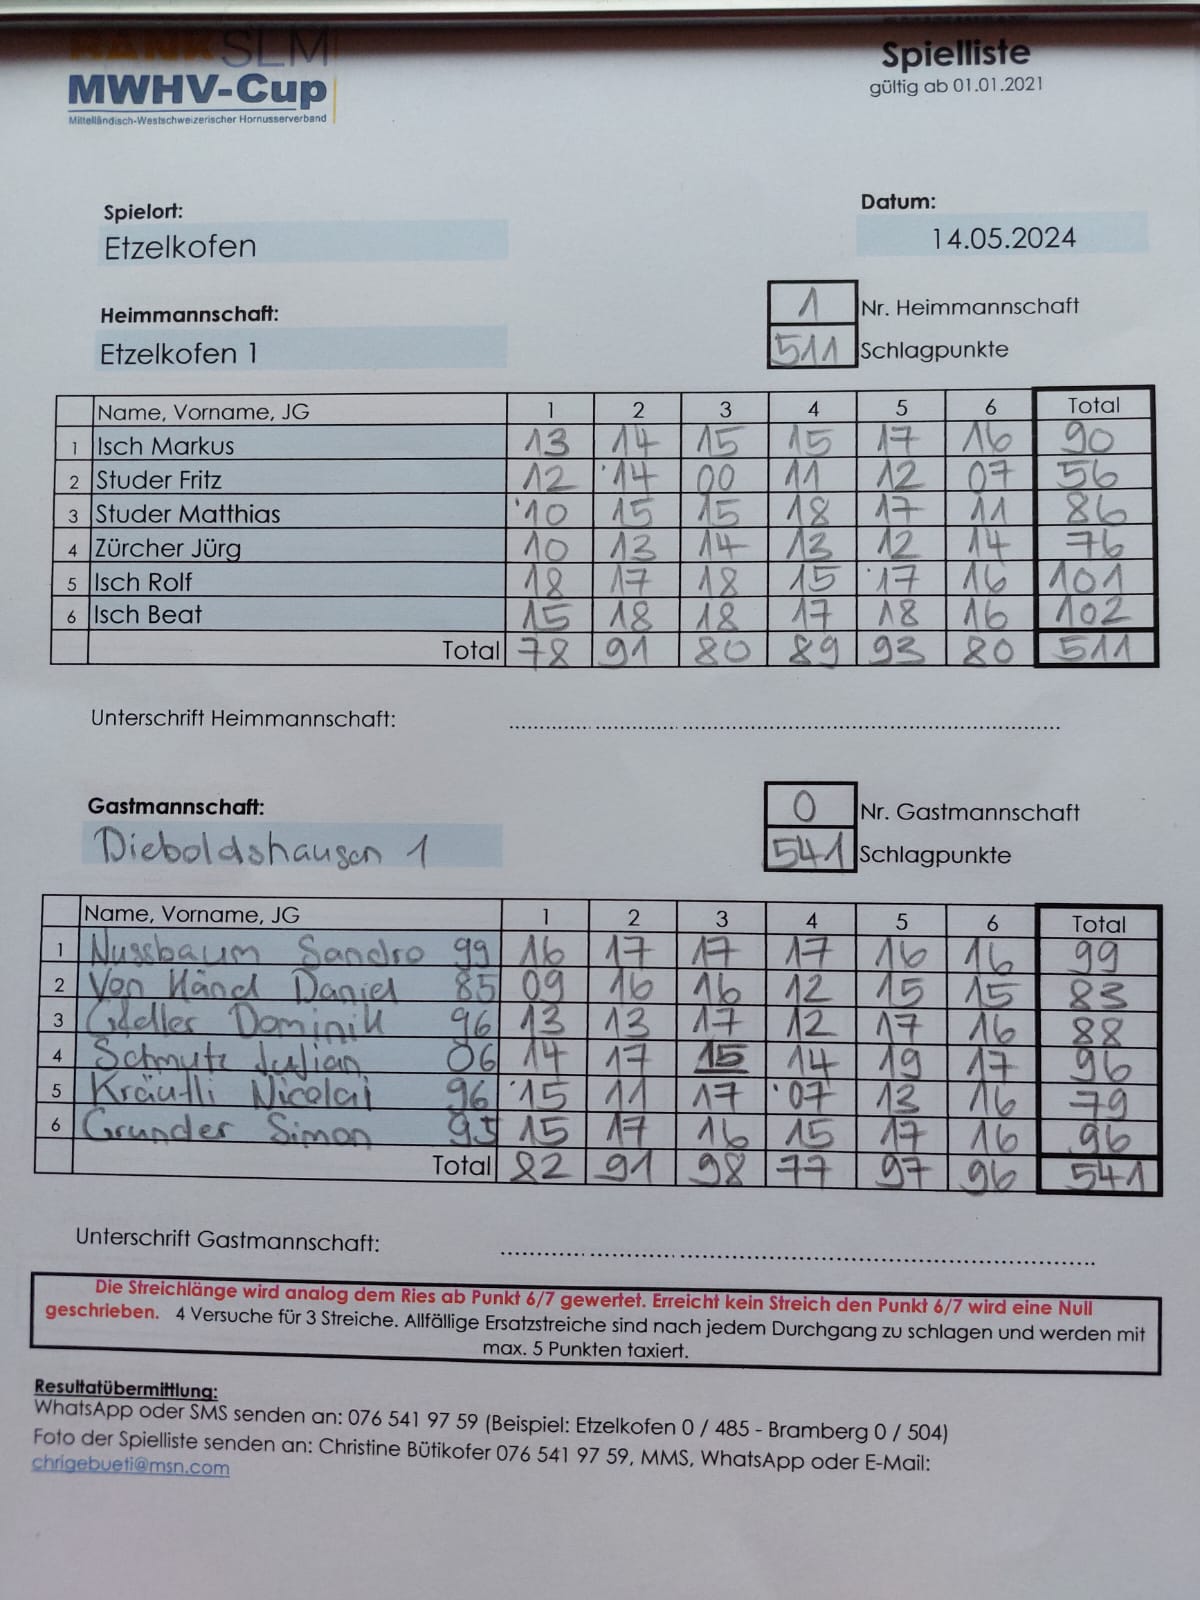 BANK SLM
MWHV-Cup
Mittelländisch-Westschweizerischer Hornusserverband
Spielliste
gültig ab 01.01.2021
Spielort:
Etzelkofen
Datum:
14.05.2024
Heimmannschaft:
Etzelkofen 1
1 Nr. Heimmannschaft
511 Schlagpunkte
Name, Vorname, JG 1 2 3 4 5 6 Total
1 Isch Markus 13 14 15 15 17 16 90
2 Studer Fritz 12 '14 00 11 12 07 56
3 Studer Matthias '10 15 15 18 17 11 86
4 Zürcher Jürg 10 13 14 13 12 14 76
5 Isch Rolf 18 17 18 15 '17 16 101
6 Isch Beat 15 18 18 17 18 16 102
Total 78 91 80 89 93 80 511
Unterschrift Heimmannschaft:
Gastmannschaft:
Dieboldshausen 1
0 Nr. Gastmannschaft
541 Schlagpunkte
Name, Vorname, JG 1 2 3 4 5 6 Total
1 Nussbaum Sandro 99 16 17 17 17 16 16 99
2 Von Känd Daniel 85 09 16 16 12 15 15 83
3 Dominik 96 13 13 17 12 17 16 88
4 Schmutz Julian 06 14 17 15 14 19 17 96
5 Kräutli Nicolai 96 '15 11 17 '07 13 16 79
6 Grunder Simon 95 15 17 16 15 17 16 96
Total 82 91 98 77 97 96 541
Unterschrift Gastmannschaft:
Die Streichlänge wird analog dem Ries ab Punkt 6/7 gewertet. Erreicht kein Streich den Punkt 6/7 wird eine Null
geschrieben. 4 Versuche für 3 Streiche. Allfällige Ersatzstreiche sind nach jedem Durchgang zu schlagen und werden mit
max. 5 Punkten taxiert.
Resultatübermittlung:
WhatsApp oder SMS senden an: 076 541 97 59 (Beispiel: Etzelkofen 0 / 485 - Bramberg 0 / 504)
Foto der Spielliste senden an: Christine Bütikofer 076 541 97 59, MMS, WhatsApp oder E-Mail:
chrigebueti@msn.com